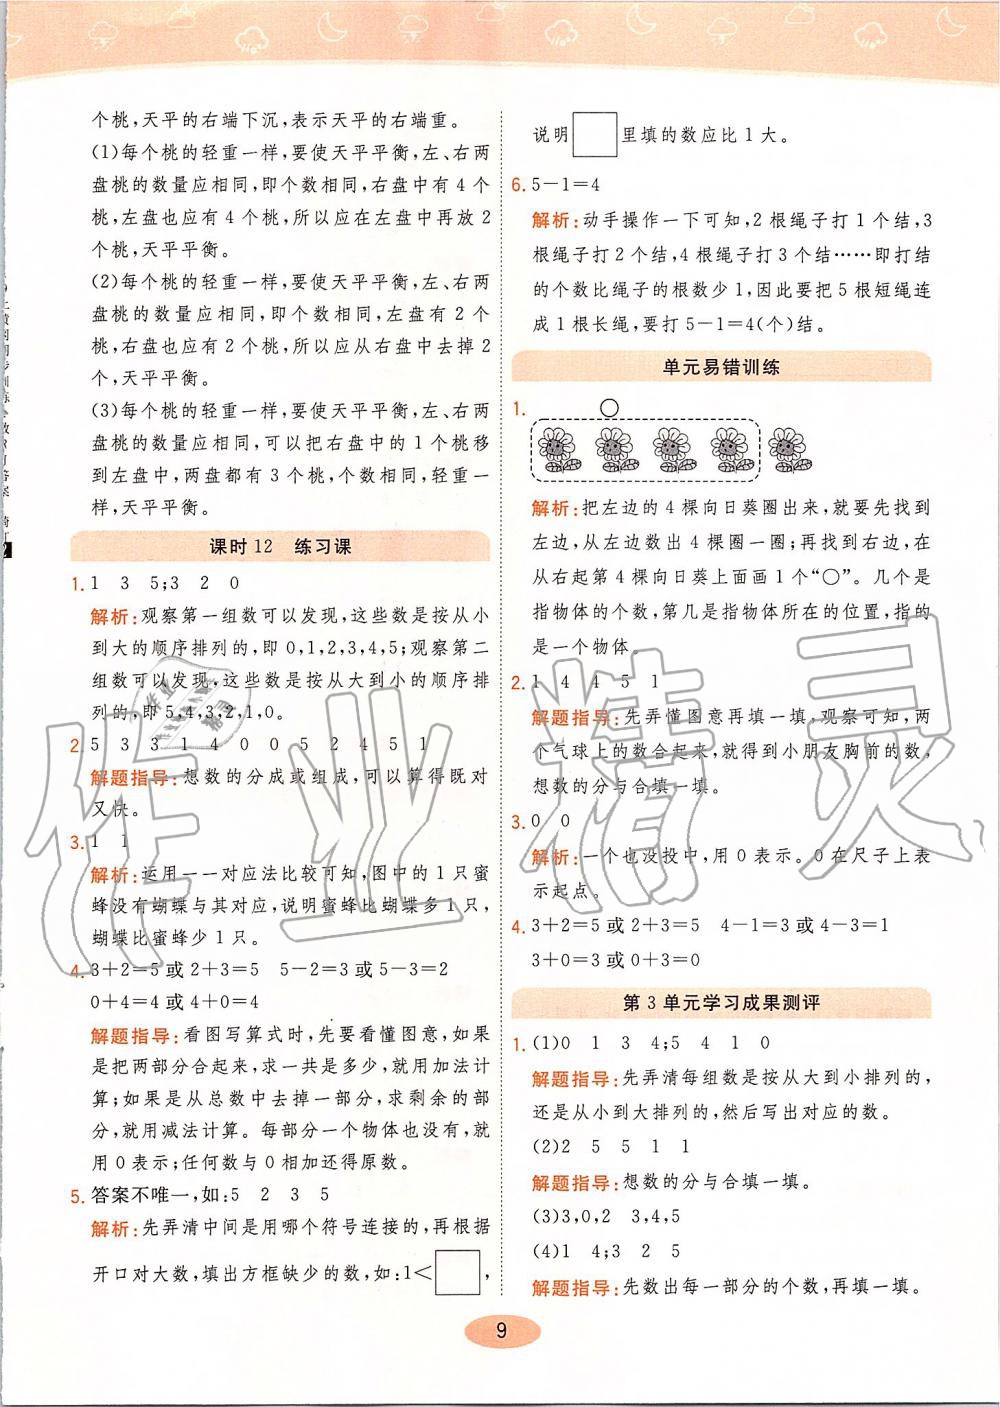 个桃,天平的右端下沉,表示天平的右端重。
(1)每个桃的轻重一样,要使天平平衡,左、右两
盘桃的数量应相同,即个数相同,右盘中有4个
桃,左盘也应有4个桃,所以应在左盘中再放2
个桃,天平平衡。
(2)每个桃的轻重一样,要使天平平衡,左、右两
盘桃的数量应相同,即个数相同,左盘应有2个
桃,右盘也应有2个桃,所以应从右盘中去掉2
个,天平平衡。
(3)每个桃的轻重一样,要使天平平衡,左、右两
盘桃的数量应相同,可以把右盘中的1个桃移
到左盘中,两盘都有3个桃,个数相同,轻重一
样,天平平衡。
课时12 练习课
1. 1 3 5;3 2 0
解析:观察第一组数可以发现,这些数是按从小
到大的顺序排列的,即0,1,2,3,4,5;观察第二
组数可以发现,这些数是按从大到小的顺序排
列的,即5,4,3,2,1,0。
2. 5 3 3 1 4 0 0 5 2 4 5 1
解题指导:想数的分成或组成,可以算得既对
又快。
3. 1 1
解析:运用一一对应法比较可知,图中的1只蜜
蜂没有蝴蝶与其对应,说明蜜蜂比蝴蝶多1只,
蝴蝶比蜜蜂少1只。
4. 3+2=5或2+3=5 5-2=3或5-3=2
0+4=4或4+0=4
解题指导:看图写算式时,先要看懂图意,如果
是把两部分合起来,求一共是多少,就用加法计
算;如果是从总数中去掉一部分,求剩余的部
分,就用减法计算。每部分一个物体也没有,就
用0表示;任何数与0相加还得原数。
5. 答案不唯一,如:5 2 3 5
解析:先弄清中间是用哪个符号连接的,再根据
开口对大数,填出方框缺少的数,如:1<□,
说明□里填的数应比1大。
6. 5-1=4
解析:动手操作一下可知,2根绳子打1个结,3
根绳子打2个结,4根绳子打3个结……即打结
的个数比绳子的根数少1,因此要把5根短绳连
成1根长绳,要打5-1=4(个)结。
单元易错训练
1.
解析:把左边的4棵向日葵圈出来,就要先找到
左边,从左边数出4棵圈一圈;再找到右边,在
从右起第4棵向日葵上面画1个“○”。几个是
指物体的个数,第几是指物体所在的位置,指的
是一个物体。
2. 1 4 4 5 1
解题指导:先弄懂图意再填一填,观察可知,两
个气球上的数合起来,就得到小朋友胸前的数,
想数的分与合填一填。
3. 0 0
解析:一个也没投中,用0表示。0在尺子上表
示起点。
4. 3+2=5或2+3=5 4-1=3或4-3=1
3+0=3或0+3=3
第3单元学习成果测评
1. (1)0 1 3 4;5 4 1 0
解题指导:先弄清每组数是按从大到小排列的,
还是从小到大排列的,然后写出对应的数。
(2)2 5 5 1 1
解题指导:想数的分与合填一填。
(3)3,0,2 3,4,5
(4)1 4;3 2 5
解题指导:先数出每一部分的个数,再填一填。
9
作业精灵